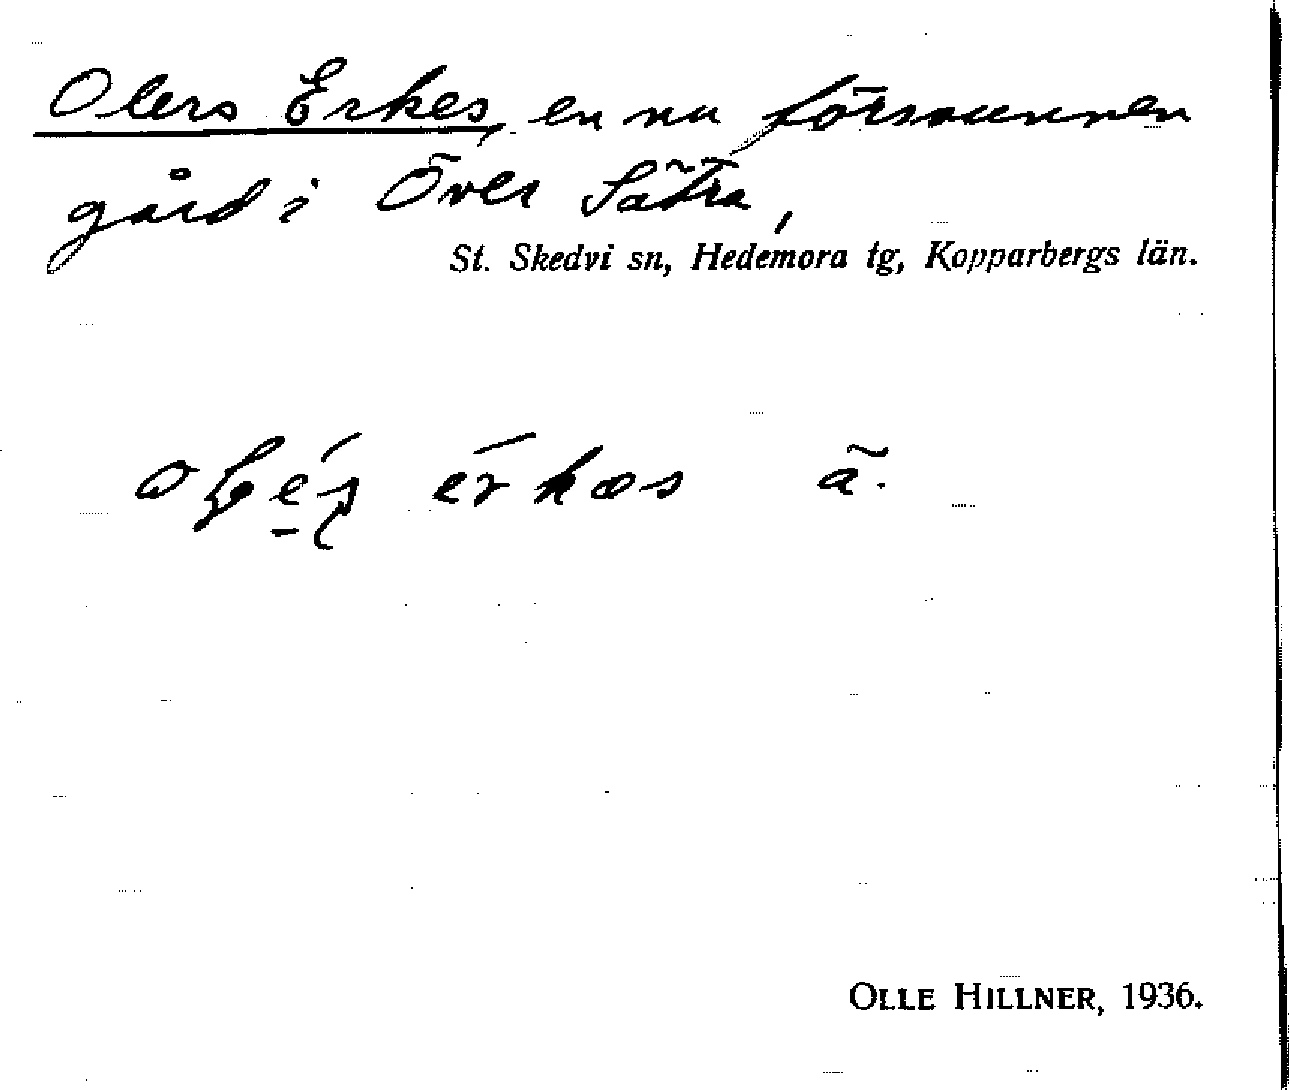 Olers Erkes, en nu försvunnen
gård i Över Sätra,
St. Skedvi sn, Hedemora tg, Kopparbergs län.
ä.
OLLE HILLNER, 1936.